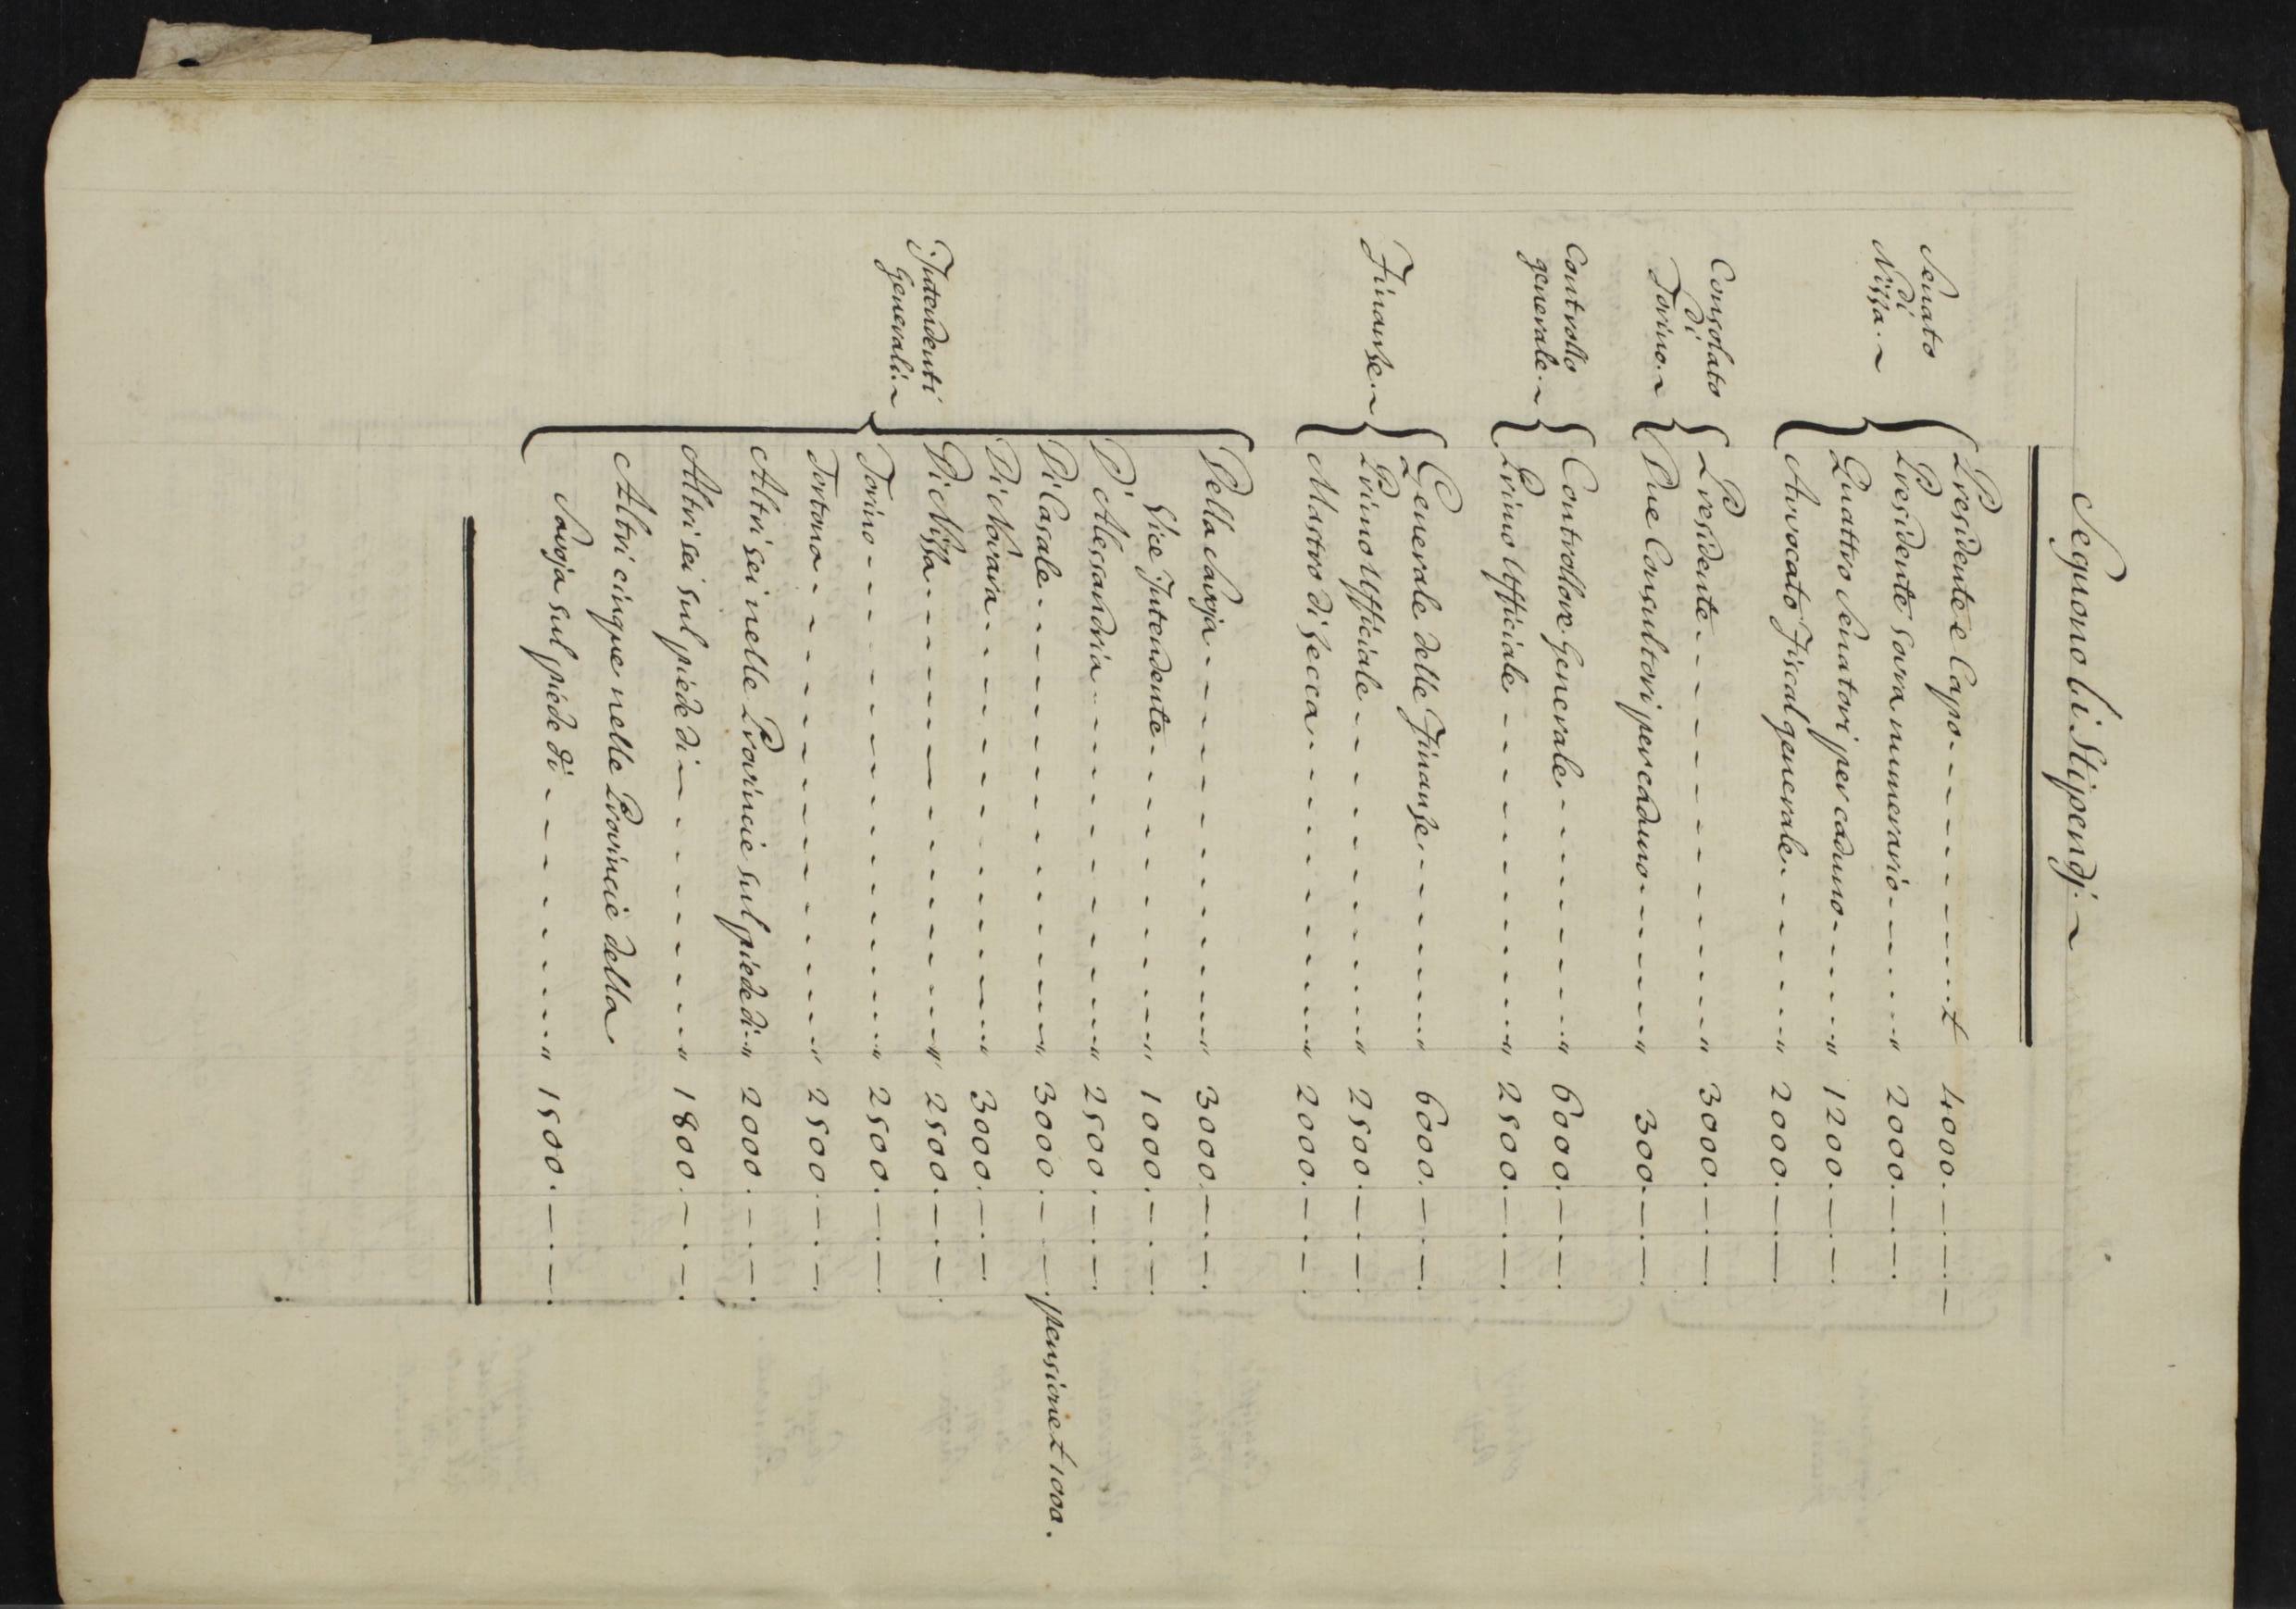 Seguono li Stipendj.
Senato
di
Nizza.
Presidente e Capo £ 4000.
Presidente sovra numerario " 2000.
Quattro Senatori per caduno " 1200.
Avvocato Fiscal generale " 2000.
Consolato
di
Torino.
Presidente " 3000.
Due Consultori per caduno " 300.
Controllo
generale.
Controllore Generale " 6000.
Primo Ufficiale " 2500.
Finanze.
Generale delle Finanze " 6000.
Primo Ufficiale " 2500.
Mastro di Zecca " 2000.
Intendenti
Generali.
Della Savoja " 3000.
Vice Intendente " 1000.
D'Alessandria " 2500.
Di Casale " 3000. pensione £ 1000.
Di Novara " 3000.
Di Nizza " 2500.
Torino " 2500.
Tortona " 2500.
Altri sei nelle Provincie sul piede di " 2000.
Altri sei sul piede di " 1800.
Altri cinque nelle Provincie della
Savoja sul piede di " 1500.